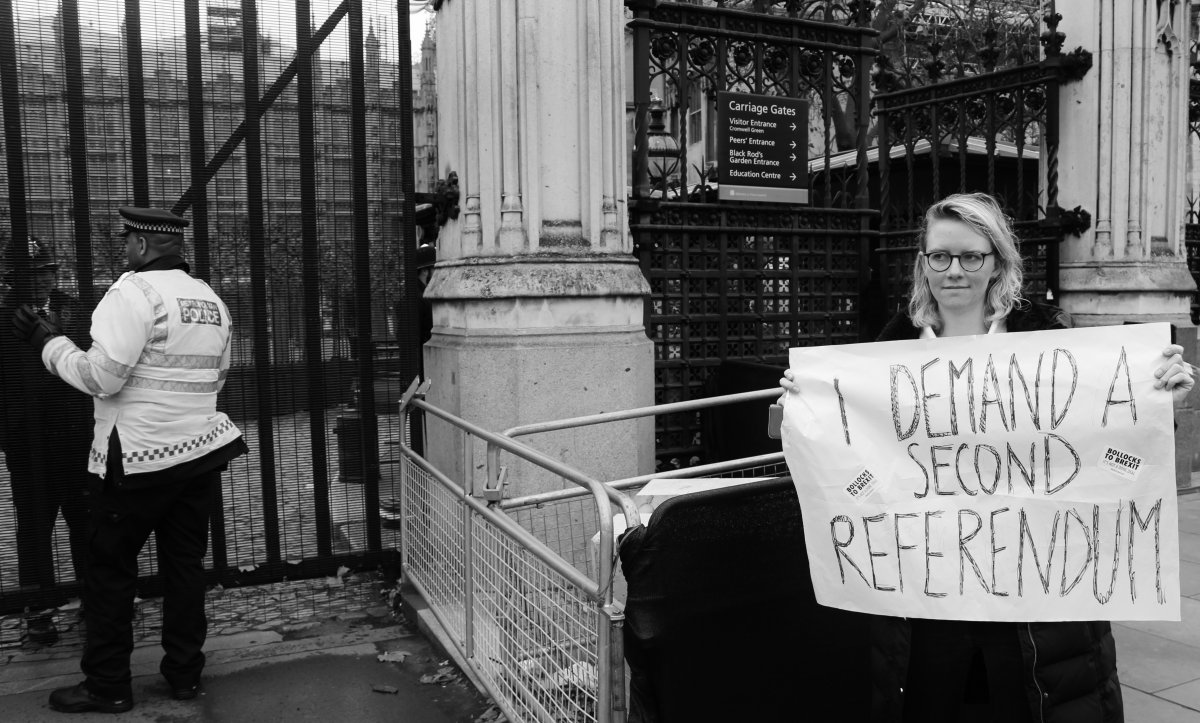 Carriage Gates
Visitor Entrance →
Cromwell Green
Peers' Entrance →
Black Rod's
Garden Entrance →
Education Centre →
METROPOLITAN
POLICE
I DEMAND A
SECOND
REFERENDUM
BOLLOCKS
TO BREXIT
BOLLOCKS
TO BREXIT